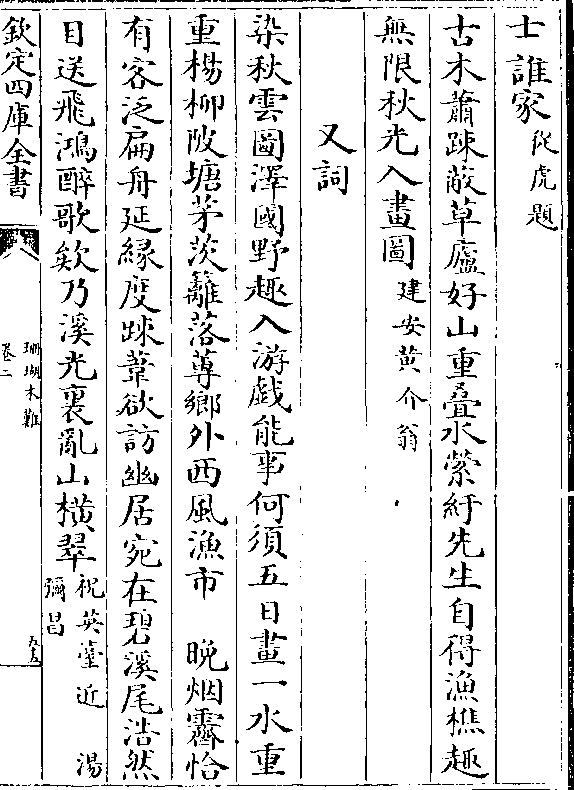 士誰家 從虎題
古木蕭踈蔽草廬好山重疊水縈紆先生自得漁樵趣
無限秋光入畫圖 建安黄介翁
又詞
染秋雲圖澤國野趣入游戲能事何須五日畫一水重
重楊柳陂塘茅茨籬落蓴鄉外西風漁市 晚烟霽恰
有客泛扁舟延緣度踈葦欲訪幽居宛在碧溪尾浩然
目送飛鴻醉歌欸乃溪光裏亂山横翠 祝英䑓近 湯
彌昌
欽定四庫全書
珊瑚木難
卷二